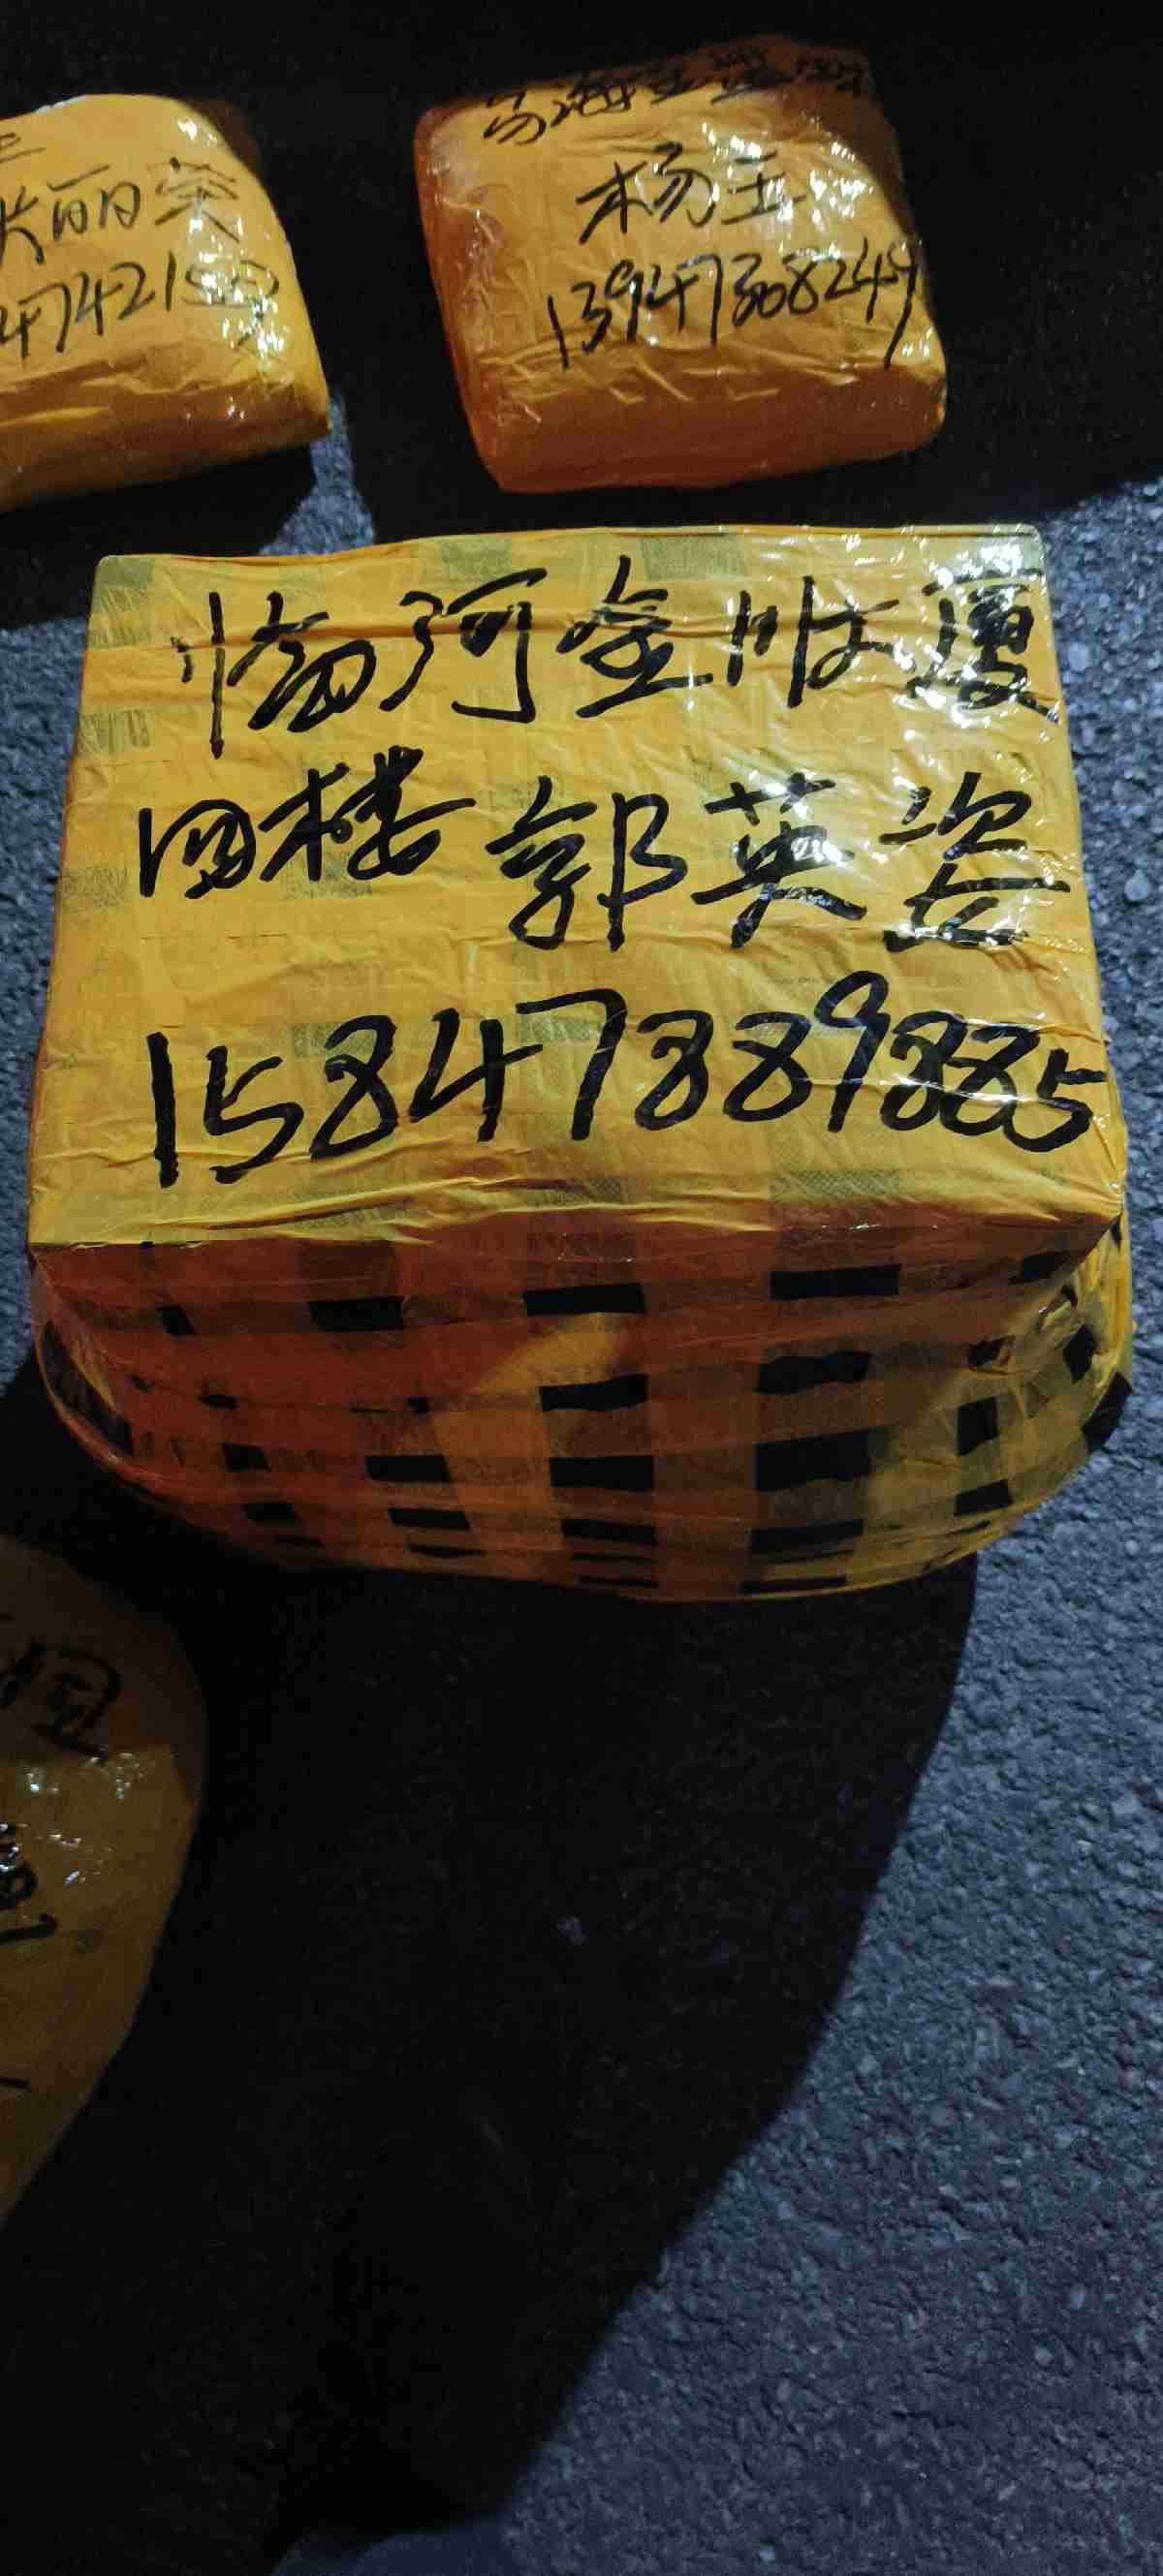 丽英
4742155
乌海
杨玉
13947308249
临河金川大厦
四楼 郭英姿
15847889885